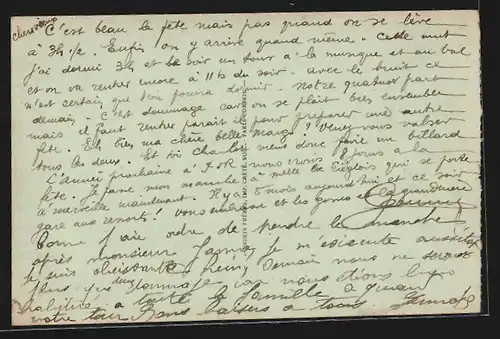 chers deux
C'est beau la fête mais pas quand on se lève
à 3h ½. Enfin on y arrive quand même. Cette nuit
j'ai dormi 3h et le soir un tour à la musique et au bal
et on va rentrer encore à 11h du soir. avec le bruit ce
n'est certain que l'on pourra dormir. Notre quatuor part
demain. C'est dommage car on se plait bien ensemble
mais il faut rentrer parait il pour préparer une autre
fête. Eh bien ma chère belle Margo? Venez vous valser
tous les deux. Et toi Charles viens donc faire un billard
L'année prochaine à nous irons 8 jours à la
fête. Je passe mon manche à melle la qui se porte
à merveille maintenant. Il y a 5 mois aujourd'hui et ce soir
gare aux ressorts! Vous embrasse et les gones et la grand'mère
Comme j'ai ordre de prendre le manche
après monsieur je m'exécute
je suis obéissante hein, Demain nous ne serons
plus que deux dommage car nous étions bien
habitués. à toute la famille à quand
votre tour Bons baisers à tous.